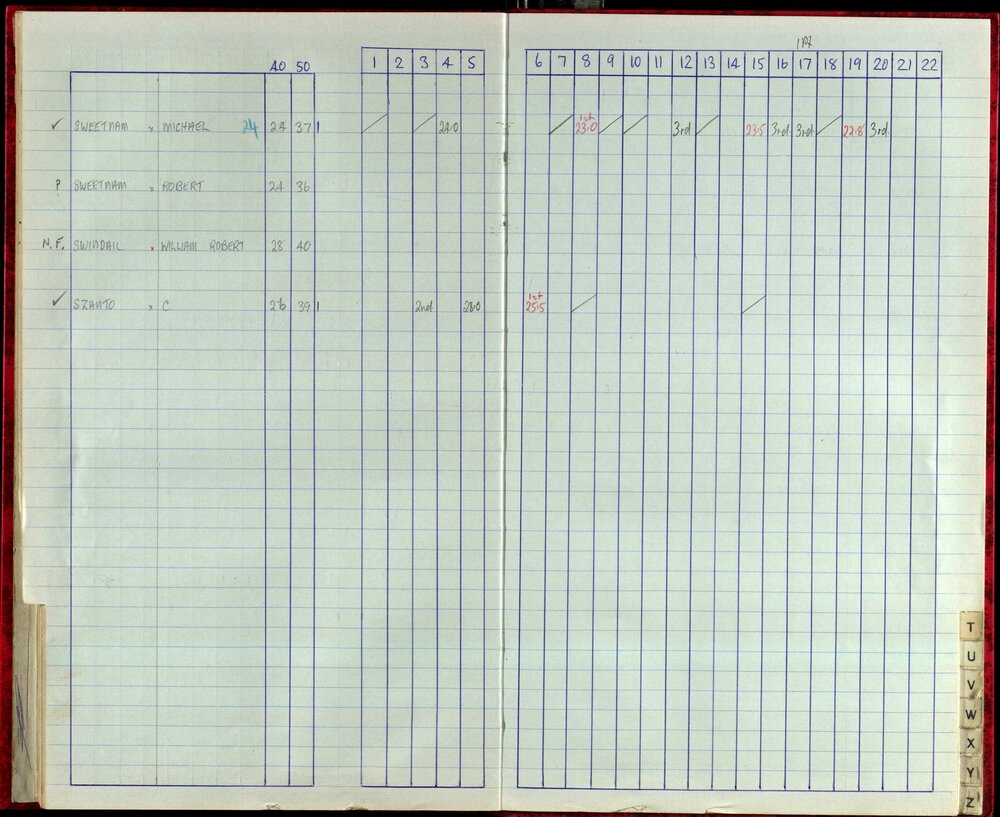 1 Pt.
40 50 1 2 3 4 5 6 7 8 9 10 11 12 13 14 15 16 17 18 19 20 21 22
✓ SWEETNAM x MICHAEL 24 24 37 1 / / 24.0 / 1st 23.0 / / 3rd / 23.5 3rd 3rd / 22.8 3rd
P SWEETNAM x ROBERT 24 36
N.F. SWINDAIL x WILLIAM ROBERT 28 40
✓ SZANTO x C 26 39 1 2nd 28.0 1st 25.5 / /
T
U
V
W
X
Y
Z